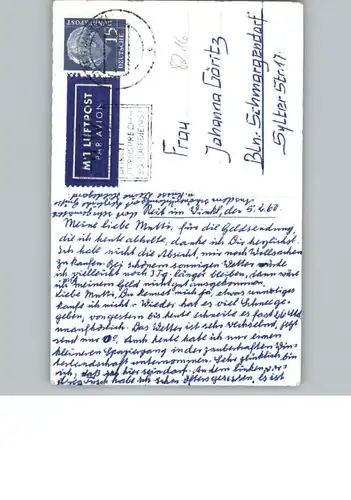 15
DEUTSCHE
BUNDESPOST
MIT LUFTPOST
PAR AVION
82 16
Frau
Johanna Göritz
Bln.-Schmargendorf
Sylter Str. 17.
Reit im Winkl, den 5.2.60.
Meine liebe Mutti, für die Geldsendung,
die ich heute abholte, danke ich Dir herzlichst.
Ich habe nicht die Absicht, mir noch Wollsachen
zu kaufen. Bei schönem sonnigen Wetter würde
ich vielleicht noch 3 Tg. länger bleiben, dann wäre
ich meinem Geld
Liebe Mutti, Du kennst mich ja, etwas unnötiges
kaufe ich nicht. – Wieder hat es viel Schnee ge-
geben, von gestern bis heute schneite es fast 24 Std
unaufhörlich. Das Wetter ist sehr wechselnd, jetzt
sind nur 0°. Auch heute habe ich nur einen
kleineren Spaziergang in der zauberhaften Win-
terlandschaft unternommen. Sehr glücklich bin
ich, daß ich hier sein darf. An dem linken
habe ich schon öfters gerissen. Es ist